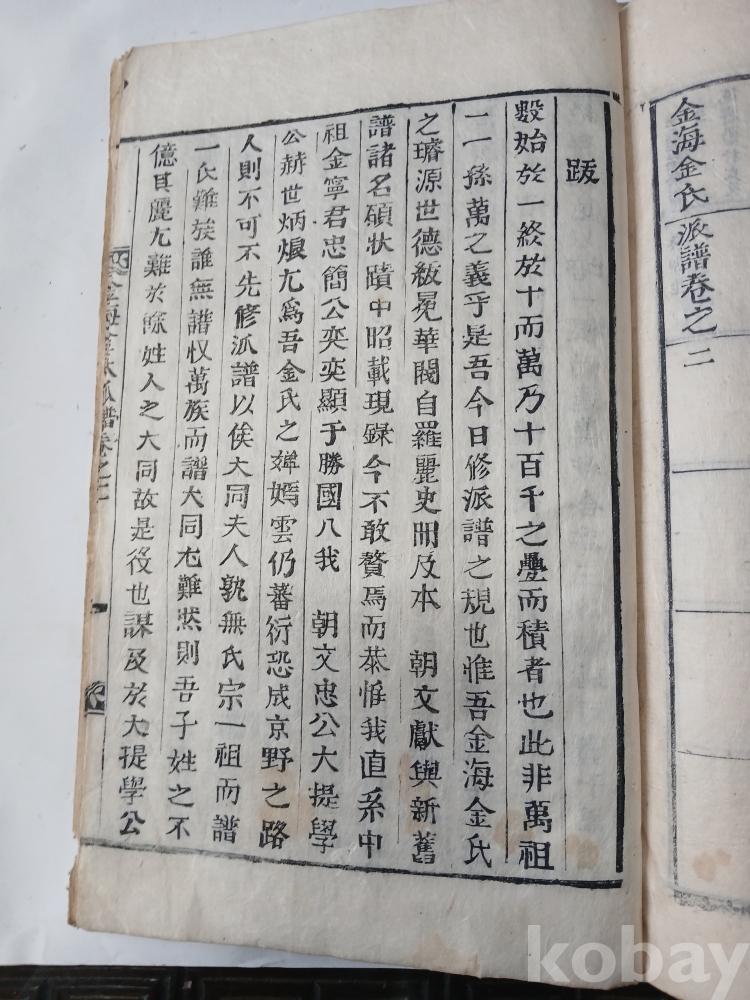 金海金氏派譜卷之二
跋
數始於一終於十而萬乃十百千之疊而積者也此非萬祖
一一孫萬之義乎是吾今日修派譜之規也惟吾金海金氏
之璿源世德紱冕華閥自羅麗史冊及本 朝文獻與新舊
譜諸名碩狀蹟中昭載現錄今不敢贅焉而恭惟我直系中
祖金寧君忠簡公奕奕顯于勝國入我 朝文忠公大提學
公赫世炳烺尤爲吾金氏之嬋嫣雲仍蕃衍恐成京野之路
人則不可不先修派譜以俟大同夫人孰無氏宗一祖而譜
一氏難族誰無譜収萬族而譜大同尤難然則吾子姓之不
億其麗尤難於餘姓人之大同故是役也謀及於大提學公
金海金氏派譜卷之二
kobay